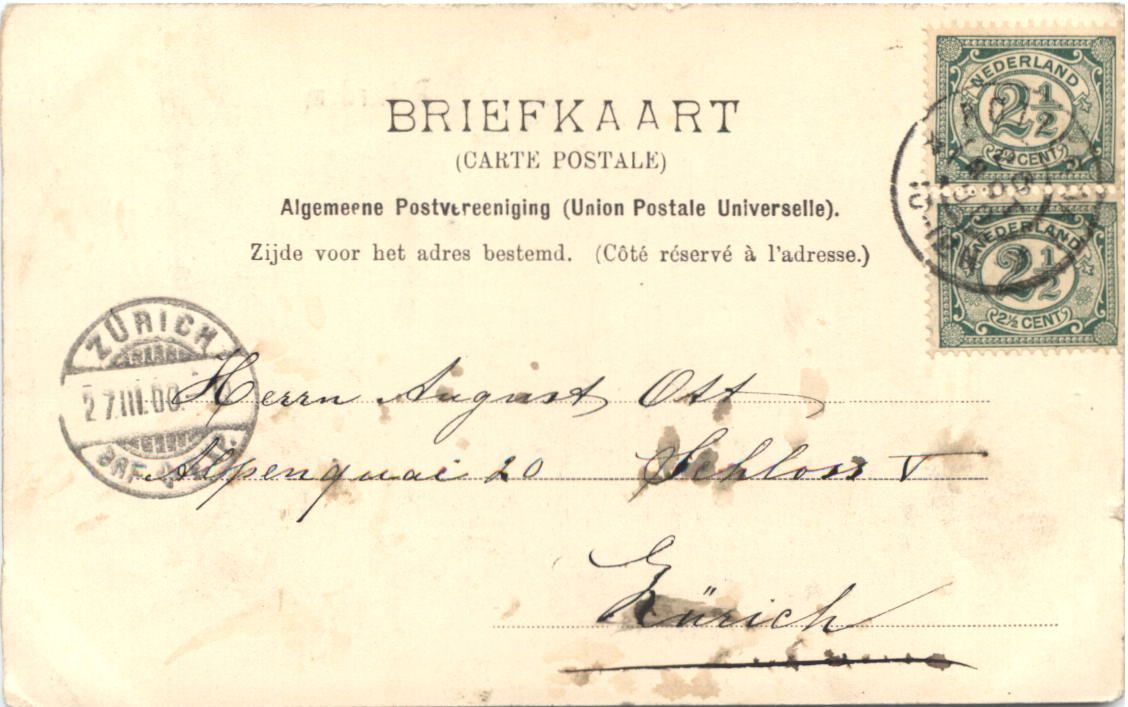 BRIEFKAART
(CARTE POSTALE)
Algemeene Postvereeniging (Union Postale Universelle).
Zijde voor het adres bestemd. (Côté réservé à l'adresse.)
NEDERLAND
2½
2½ CENT
NEDERLAND
2½
2½ CENT
ZÜRICH
27.III.00.
Herrn August Ott
Alpenquai 20 Schloss V
Zürich